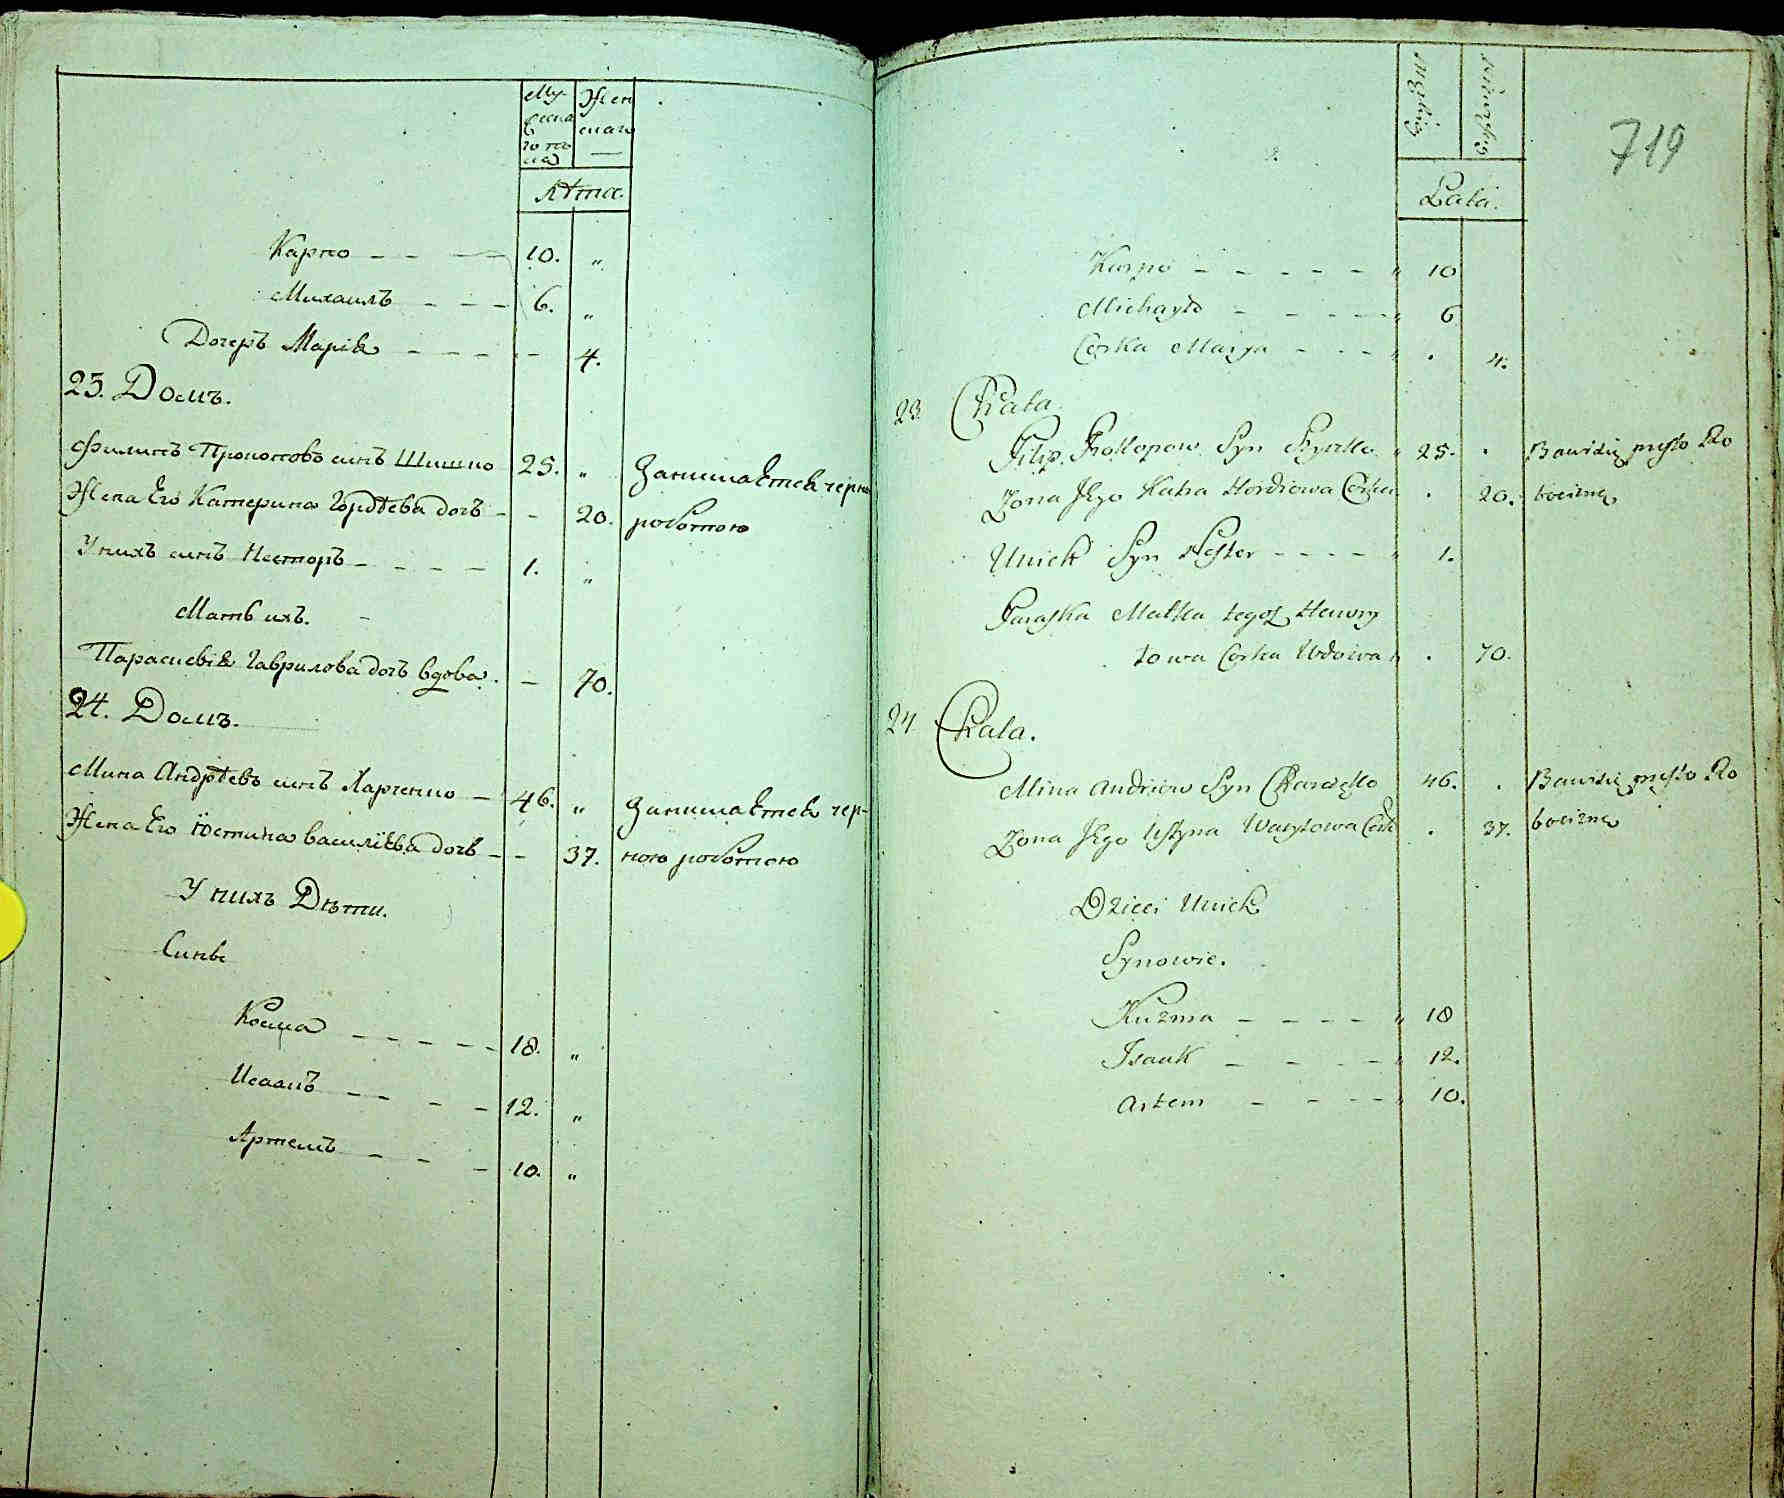 Мужеска го пола
Женскаго
Лѣта.
Карпо 10. "
Михаилъ 6. "
Дочерь Марія - 4.
23. Домъ.
Филипъ Прокоповъ синъ Шишко 25. " Занимается черно
Жена Его Катерина Гордѣева дочь - 20. роботою
У нихъ синъ Несторъ 1. "
Мать ихъ.
Парасневія Гаврилова дочь вдова. - 70.
24. Домъ.
Мина Андрѣевъ синъ Харченко 46. " Занимается чер-
Жена Его Юстина василіева дочь - 37. ною роботою
У нихъ Дѣти.
Сини
Косма 18. "
Исаакъ 12. "
Артемъ 10. "
719
Męzkiej
Lata.
Karpo " 10
Michayło " 6
Corka Marya " . 4.
23 Chata.
Filip Prokopow Syn Szyszko " 25. . Bawi się prosto Ro
Zona Jego Katra Hordiowa Corka . 20. bocizną
Unich Syn Nester " 1.
Paraska Matka tegoż Hawry
łowa Corka Wdowa " . 70.
24 Chata.
Mina Andriew Syn Charczko 46. . Bawi się prosto Ro
Zona Jego Ustyna Wasylowa Cork . 37. bocizną
Dzieci Unich
Synowie.
Kuzma " 18
Isaak " 12.
Artem " 10.